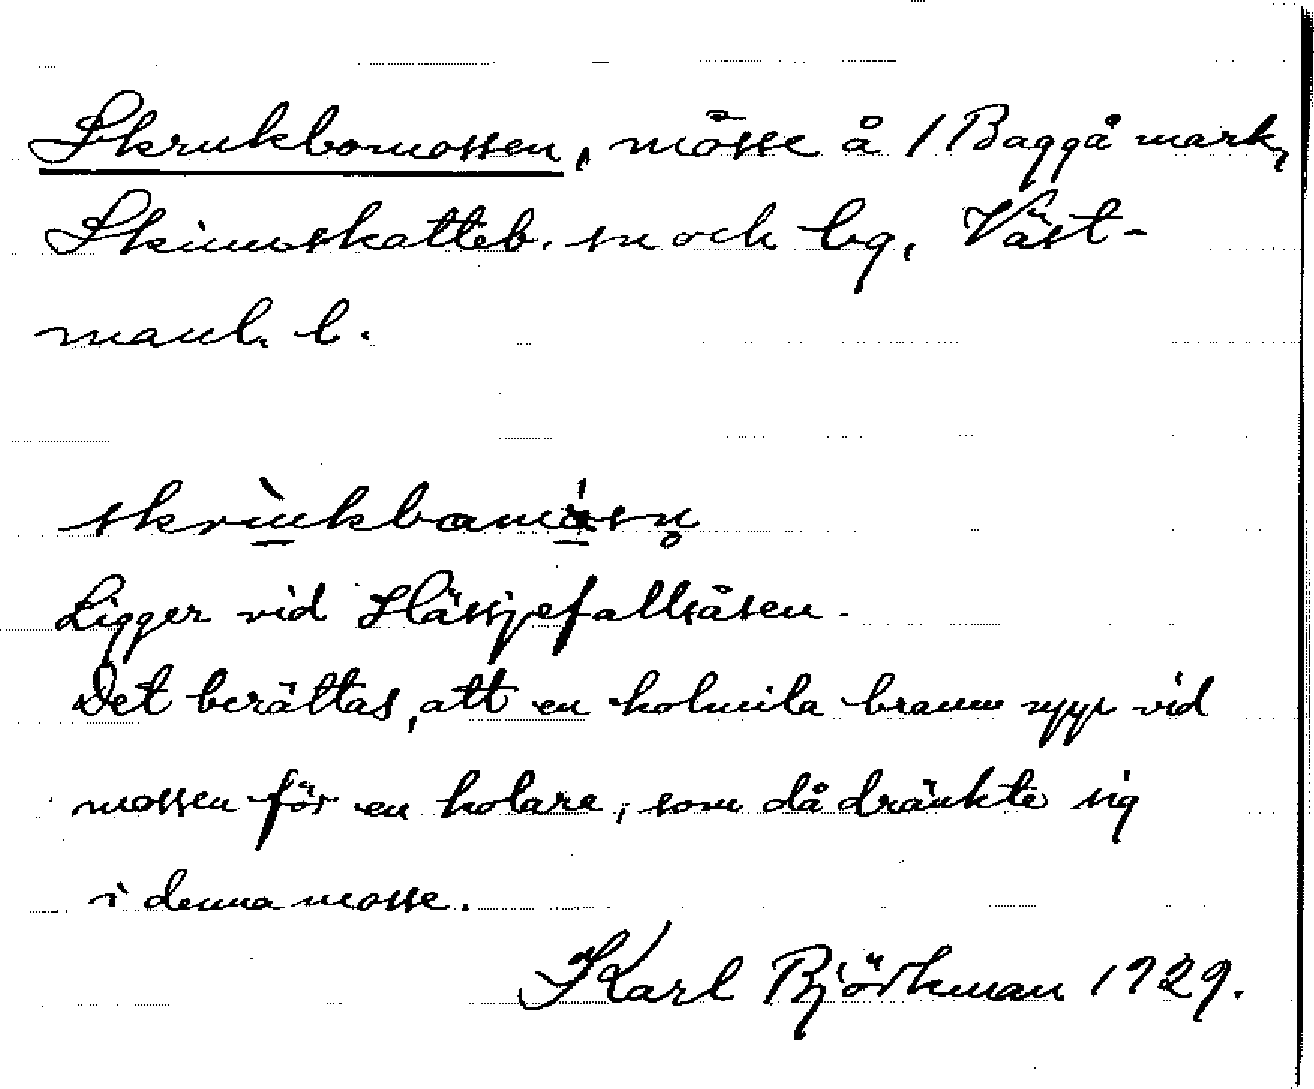 Skrukbomossen, mosse å 1 Baggå mark,
Skinnskatteb. sn och bg, Väst-
manl. l.
Ligger vid Hässjefallsåsen.
Det berättas, att en kolmila brann upp vid
mossen för en kolare, som då dränkte sig
i denna mosse.
Karl Björkman 1929.